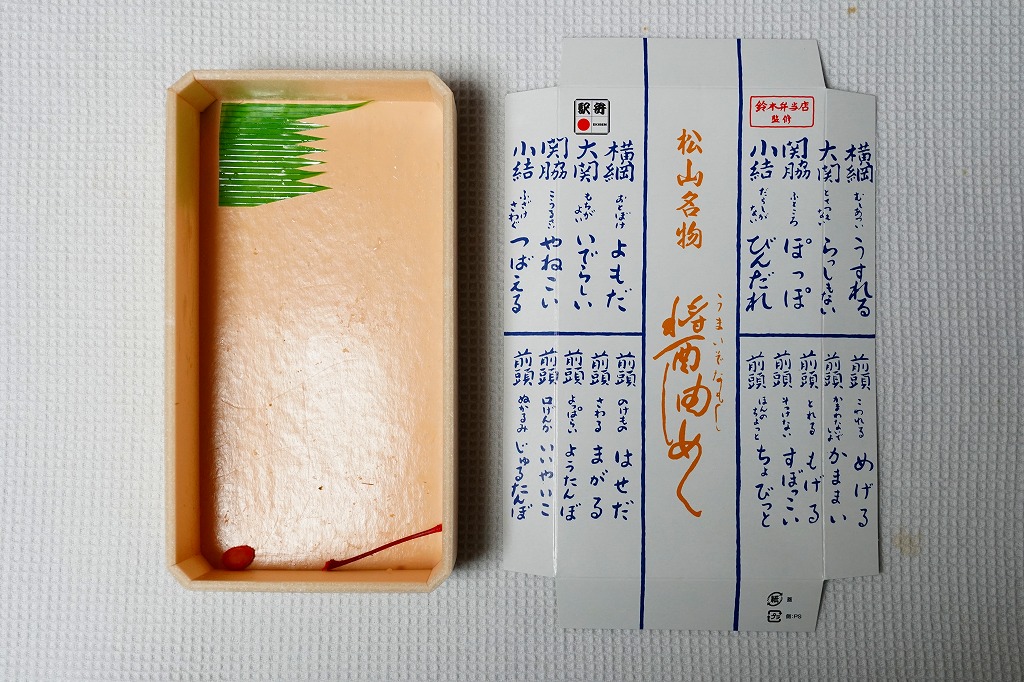 鈴木弁当店
監修
横綱 むしあつい うすれる
大関 とさつえない らっしもない
関脇 ふところ ぽっぽ
小結 だらしがない びんだれ
前頭 こわれる めげる
前頭 かまわないでよ かままい
前頭 とれる もげる
前頭 そっけない すぼっこい
前頭 ほんのちょっと ちょびっと
松山名物
うまいぞなもし
醤油めし
駅弁
EKIBEN
横綱 おとぼけ よもだ
大関 もちがよい いでらしい
関脇 こうるさい やねこい
小結 ふざけさわぐ つばえる
前頭 のけもの はせだ
前頭 さわる まがる
前頭 よっぱらい ようたんぼ
前頭 口げんか いいやいこ
前頭 ぬかるみ じゅるたんぼ
紙 蓋
プラ 箱:PS